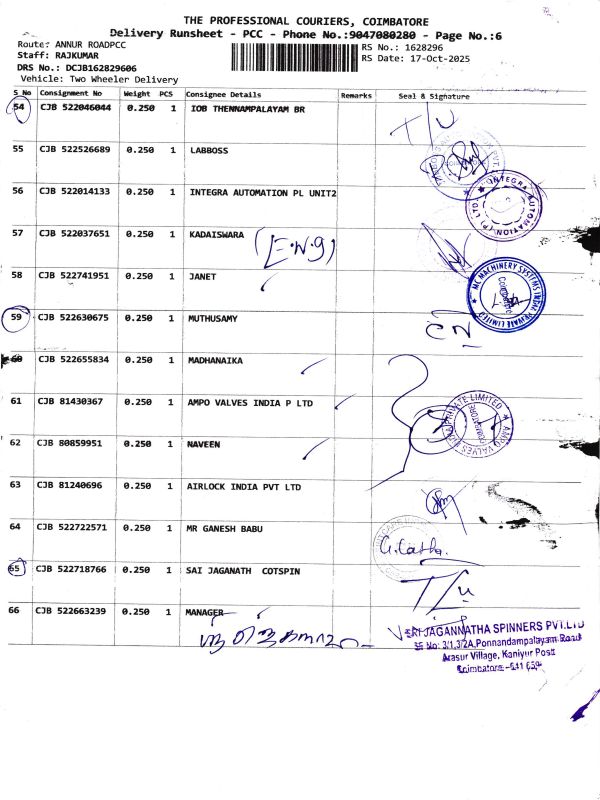 THE PROFESSIONAL COURIERS, COIMBATORE
Delivery Runsheet - PCC - Phone No.:9047080280 - Page No.:6
Route: ANNUR ROADPCC
RS No.: 1628296
Staff: RAJKUMAR
RS Date: 17-Oct-2025
DRS No.: DCJB162829606
Vehicle: Two Wheeler Delivery
S No Consignment No Weight PCS Consignee Details Remarks Seal & Signature
54 CJB 522046044 0.250 1 IOB THENNAMPALAYAM BR
55 CJB 522526689 0.250 1 LABBOSS
56 CJB 522014133 0.250 1 INTEGRA AUTOMATION PL UNIT2
INTEGRA AUTOMATION (P) LTD
57 CJB 522037651 0.250 1 KADAISWARA
58 CJB 522741951 0.250 1 JANET
MC MACHINERY SYSTEMS INDIA PRIVATE LIMITED
Coimbatore
59 CJB 522630675 0.250 1 MUTHUSAMY
60 CJB 522655834 0.250 1 MADHANAIKA
61 CJB 81430367 0.250 1 AMPO VALVES INDIA P LTD
AMPO VALVES INDIA PRIVATE LIMITED
COIMBATORE
62 CJB 80859951 0.250 1 NAVEEN
63 CJB 81240696 0.250 1 AIRLOCK INDIA PVT LTD
64 CJB 522722571 0.250 1 MR GANESH BABU
65 CJB 522718766 0.250 1 SAI JAGANATH COTSPIN
66 CJB 522663239 0.250 1 MANAGER
SRI JAGANNATHA SPINNERS PVT.LTD
SF No: 3/1,3/2A,Ponnandampalayam Road
Arasur Village, Kaniyur Post
Coimbatore - 641 659